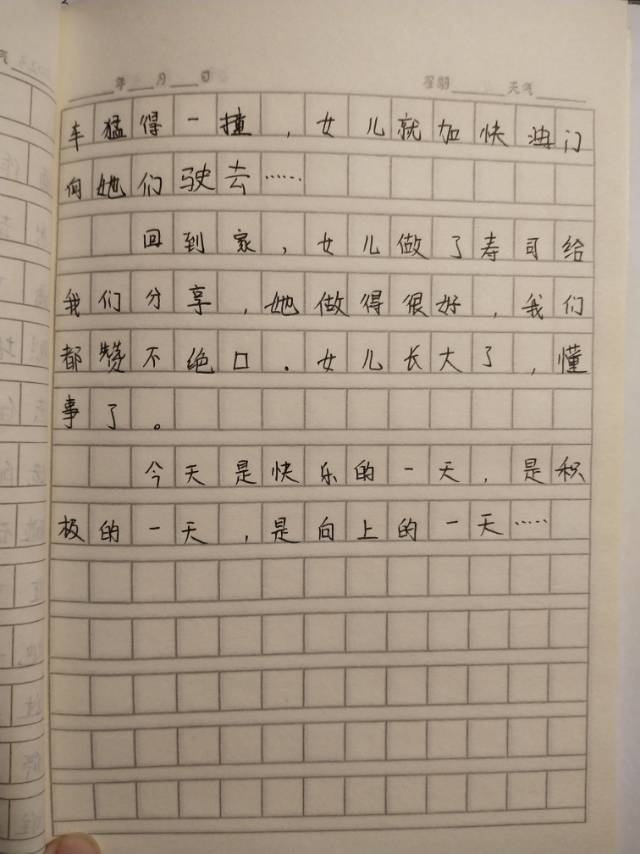 年 月 日 星期 天气
车猛得一撞，女儿就加快油门
向她们驶去……
回到家，女儿做了寿司给
我们分享，她做得很好，我们
都赞不绝口．女儿长大了，懂
事了。
今天是快乐的一天，是积
极的一天，是向上的一天……